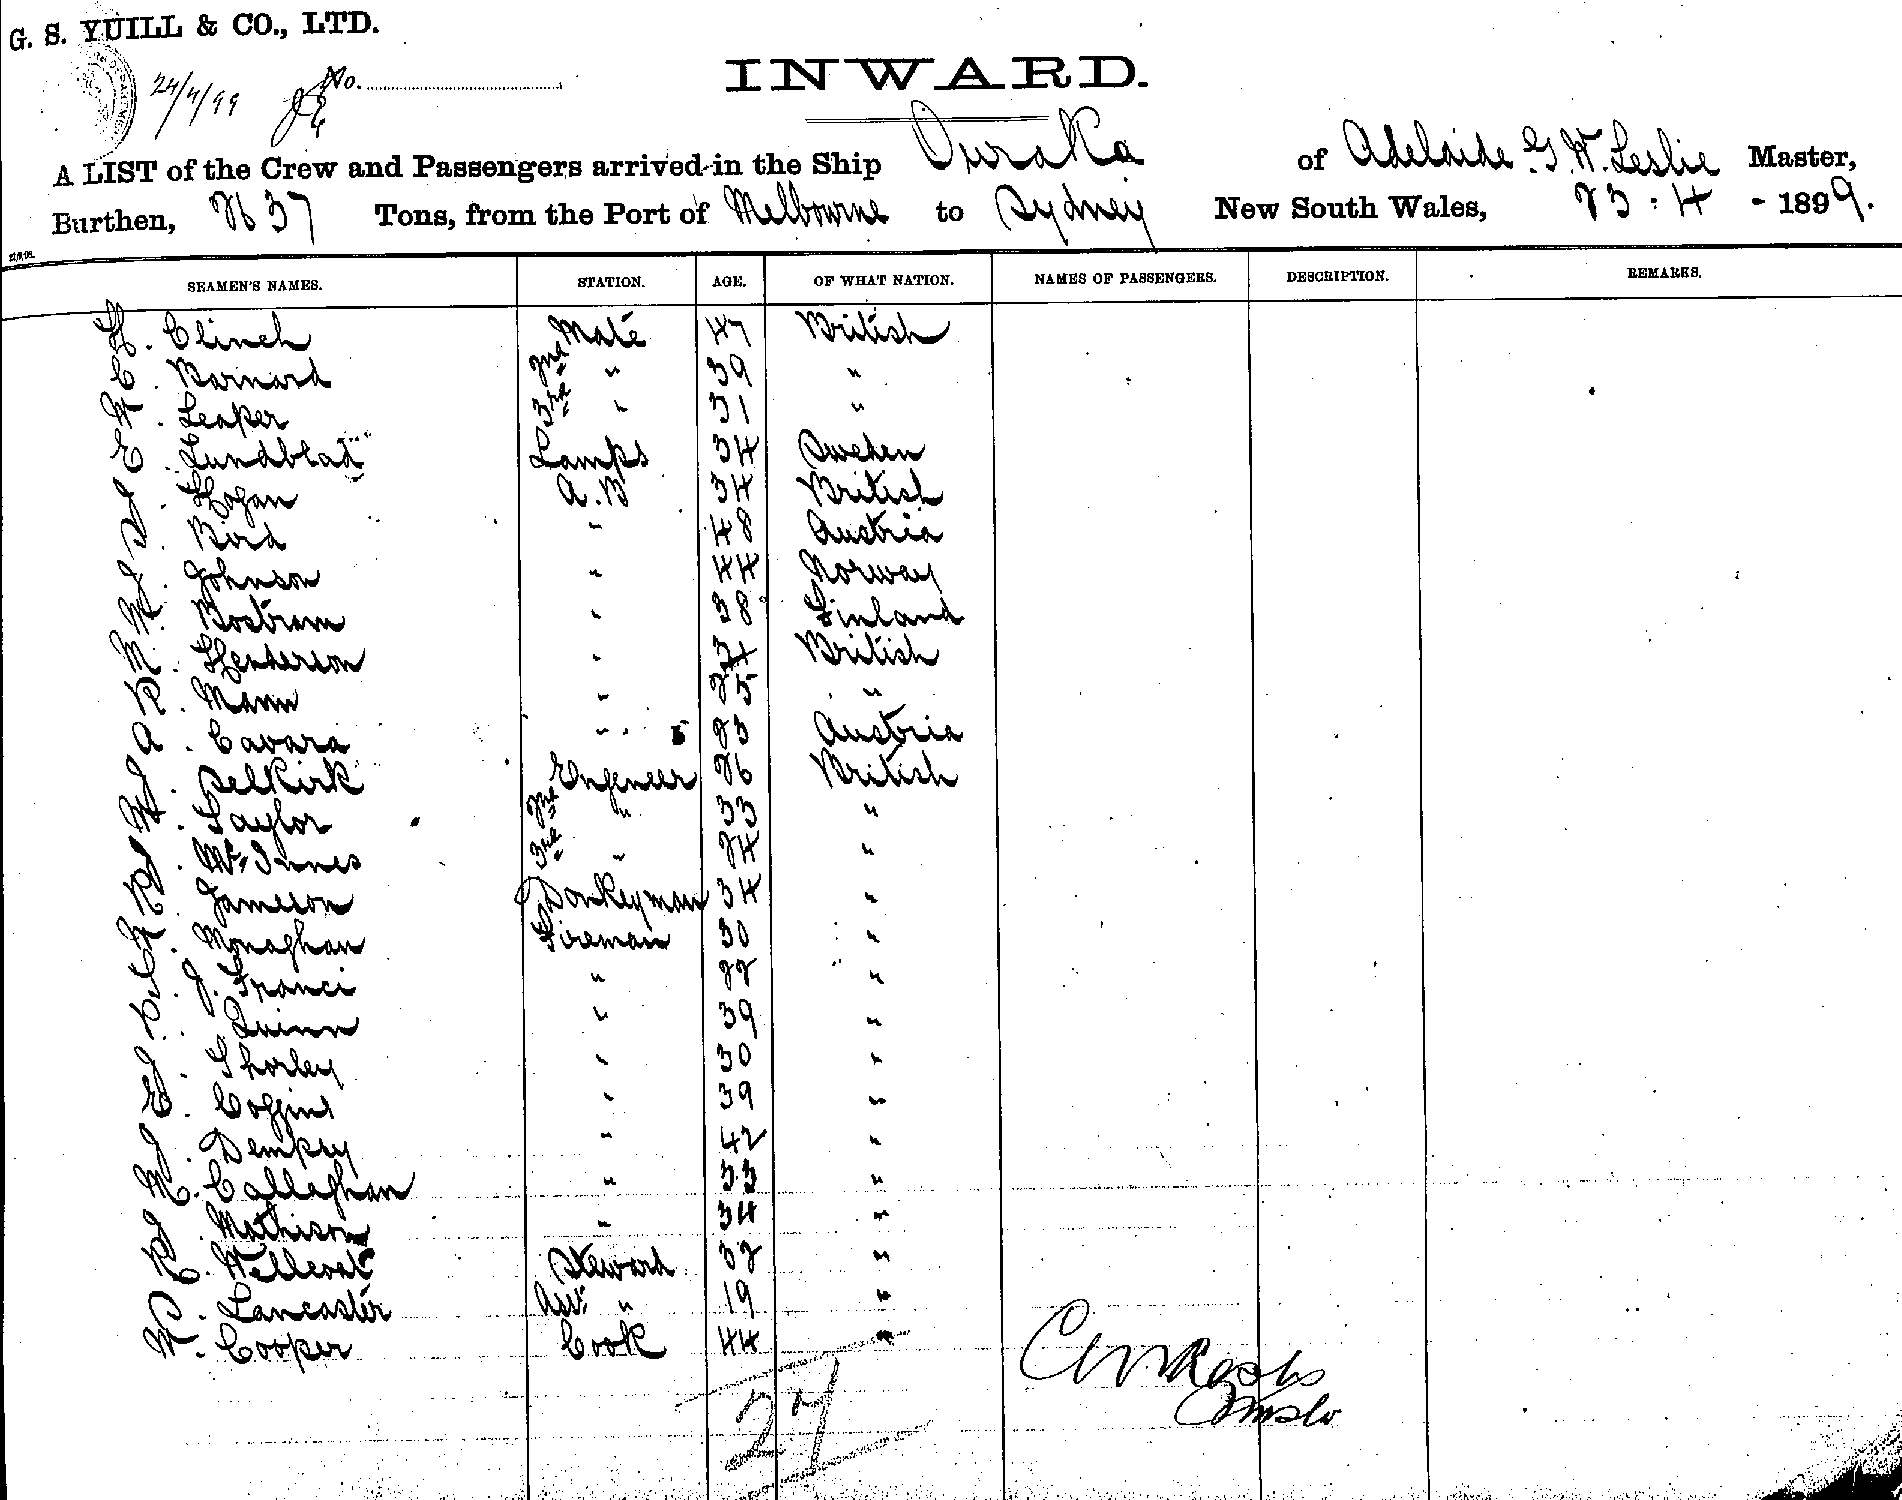 G. S. YUILL & CO., LTD.
24/4/99 No.
INWARD.
A LIST of the Crew and Passengers arrived in the Ship Ouraka of Adelaide G. W. Leslie Master,
Burthen, 2637 Tons, from the Port of Melbourne to Sydney New South Wales, 23 : 4 - 1899.
SEAMEN'S NAMES. STATION. AGE. OF WHAT NATION. NAMES OF PASSENGERS. DESCRIPTION. REMARKS.
H. Clinch Mate 47 British
C. Barnard 2nd " 39 "
W. Leaper 3rd " 31 "
E. Lundblad Lamps 34 Sweden
J. Hogan A.B 34 British
Bird " 48 Austria
J. Johnson " 44 Norway
W. Bostrom " 38 Finland
M. Henderson " British
R. Mann " 25 "
A. Cavara " 23 Austria
J. Selkirk Engeneer 26 British
W. Taylor 2nd " 33 "
J. McInnes 3rd " 24 "
R. Jameson Donkeyman 34 "
W. Monaghan Fireman 30 "
C. J. Franci " 22 "
P. Quinn " 39 "
J. Thorley " 30 "
E. Coggins " 39 "
J. Dempsy " 42 "
M. Callaghan " 33 "
J. Mathison " 34 "
R. Steward 32 "
C. Lancaster Ass: " 19 "
W. Cooper Cook 44 "
27